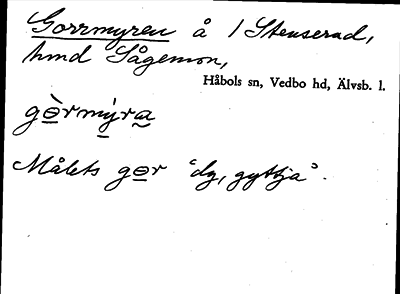 Gorrmyren å 1 Stenserud,
hmd Sågemon,
Håbols sn, Vedbo hd, Älvsb. l.
gòrmýra
Målets gor "dy, gyttja".